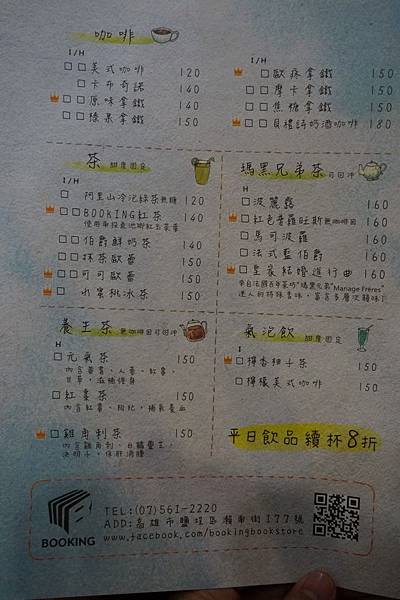 咖啡
I/H
□□美式咖啡 120
□卡布奇諾 140
□□原味拿鐵 140
□□榛果拿鐵 150
I/H
□歐蕾拿鐵 150
□□摩卡拿鐵 150
□□焦糖拿鐵 150
□□貝禮詩奶酒咖啡 180
茶 甜度固定
I/H
□ 阿里山冷泡綠茶無糖 120
□□BOOKING紅茶 140
□□伯爵鮮奶茶 140
□□抹茶歐蕾 150
□□可可歐蕾 150
□ 水果粒冰茶 150
瑪黑兄弟茶 可回沖
H
□波麗露 160
□紅色普羅旺斯無咖啡因 160
□馬可波羅 160
□法式藍伯爵 160
□皇家結婚進行曲 160
來自法國百年茶坊"瑪黑兄弟"Mariage Frères"
迷人的特殊香味，富含多層次韻味！
養生茶 無咖啡因可回沖
H
□元氣茶 150
內含黃耆、人蔘、紅棗、
甘草，滋補強身
□紅棗茶 150
內含紅棗、枸杞，補氣養血
□雞角刺茶 150
內含雞角刺、白鶴靈芝、
決明子，保肝清腫
氣泡飲 甜度固定
I
□檸香柑十茶 150
□檸檬美式咖啡 150
平日飲品續杯8折
BOOKING
TEL:(07)561-2220
ADD:高雄市鹽埕區瀨南街177號
www.facebook.com/bookingbookstore